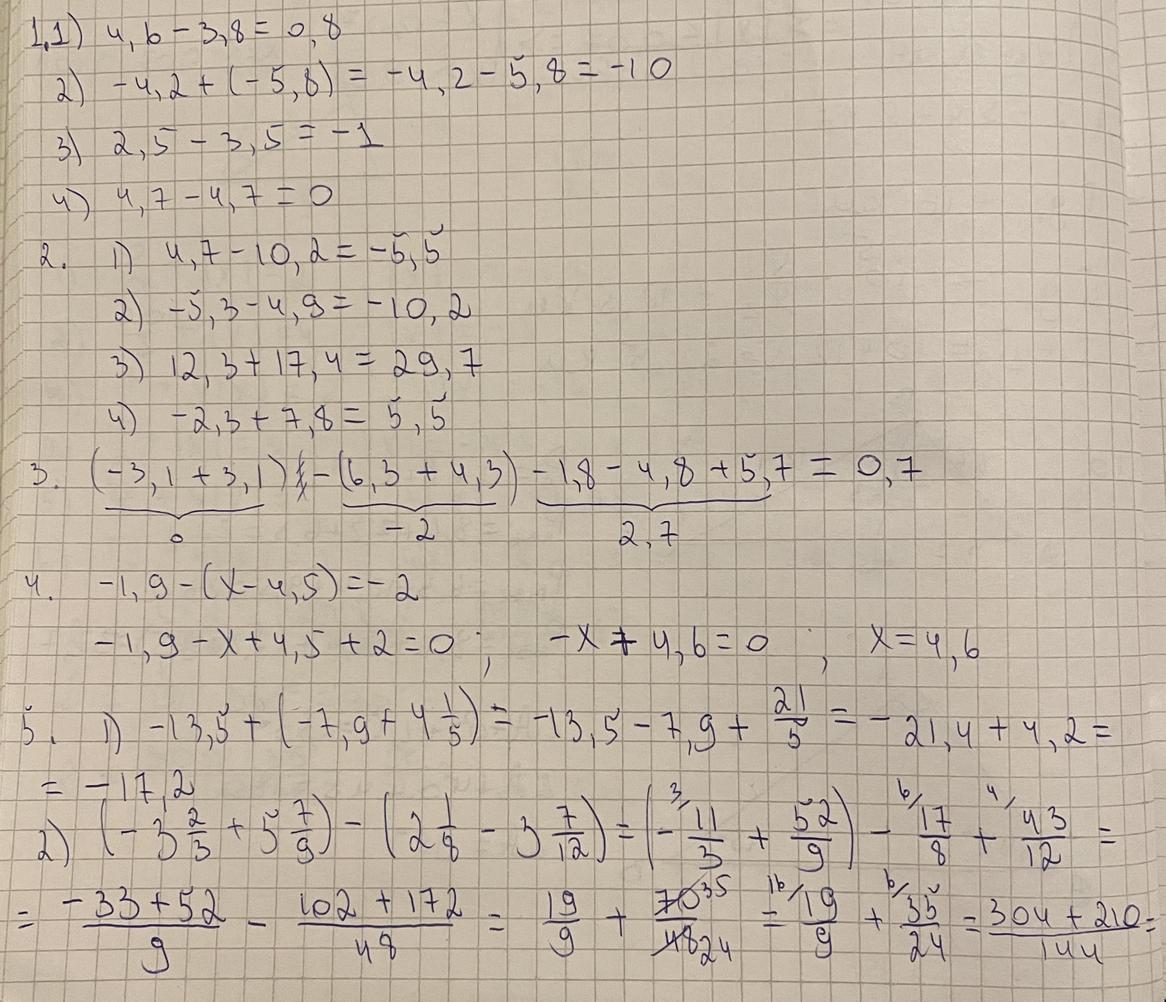 1,1) 4,6 - 3,8 = 0,8
2) -4,2 + (-5,8) = -4,2 - 5,8 = -10
3) 2,5 - 3,5 = -1
4) 4,7 - 4,7 = 0
2. 1) 4,7 - 10,2 = -5,5
2) -5,3 - 4,9 = -10,2
3) 12,3 + 17,4 = 29,7
4) -2,3 + 7,8 = 5,5
3. (-3,1 + 3,1) - (6,3 + 4,3) - 1,8 - 4,8 + 5,7 = 0,7
0 -2 2,7
4. -1,9 - (x - 4,5) = -2
-1,9 - x + 4,5 + 2 = 0 ; -x + 4,6 = 0 ; x = 4,6
5. 1) -13,5 + (-7,9 + 4 1/5) = -13,5 - 7,9 + 21/5 = -21,4 + 4,2 =
= -17,2
2) (-3 2/3 + 5 7/9) - (2 1/8 - 3 7/12) = (- 3/ 11/3 + 52/9) - 6/ 17/8 + 4/ 43/12 =
= (-33 + 52)/9 - (102 + 172)/48 = 19/9 + 70 35/48 24 = 16/ 19/9 + 6/ 35/24 = (304 + 210)/144 =